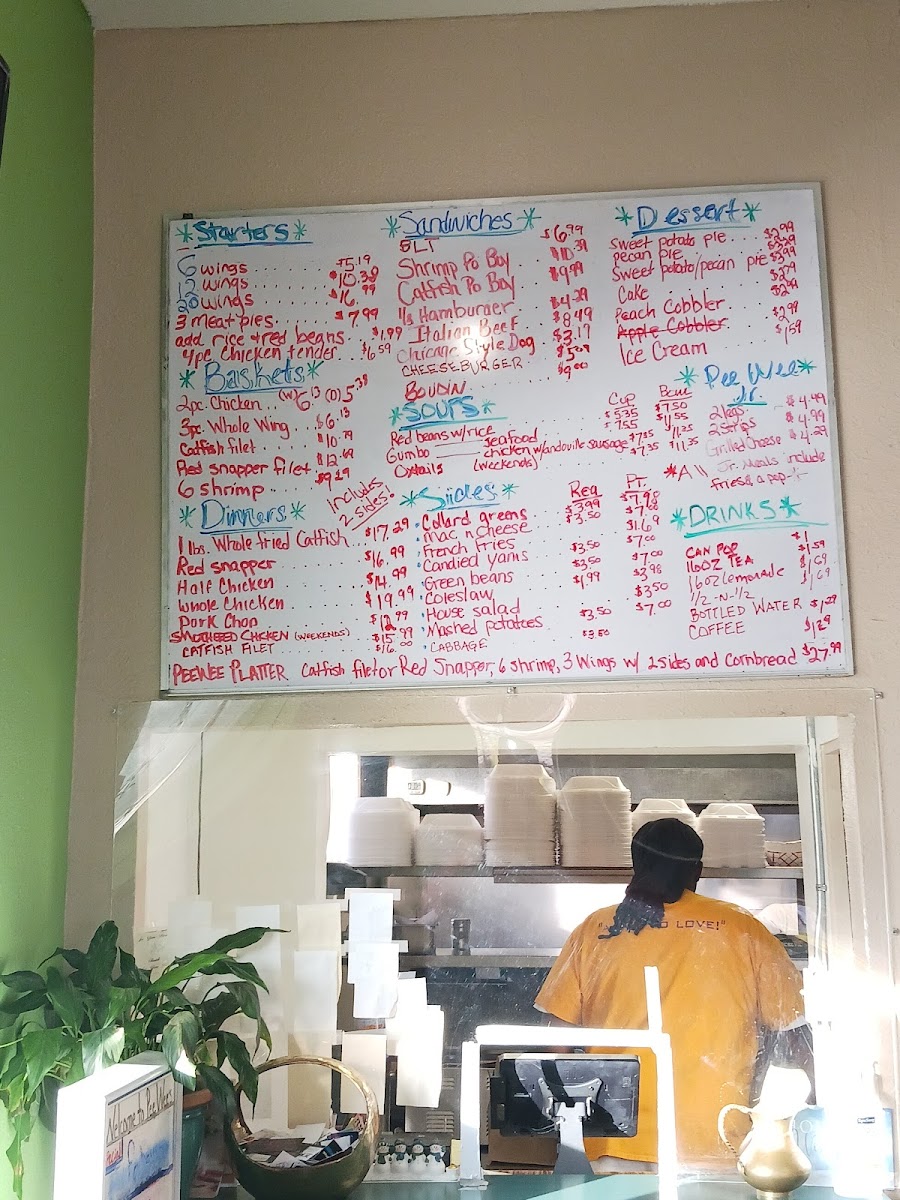 *Starters*
6 wings ........ $5.19
12 wings ........ $10.38
20 wings ........ $16.99
3 meat pies ..... $7.99
add rice + red beans .. $1.99
4pc. Chicken tender ... $6.59
*Baskets*
2pc. Chicken .. (w) 6.13 (D) 5.38
3pc. Whole Wing ... $6.13
Catfish filet ..... $10.79
Red snapper filet .. $12.69
6 shrimp ....... $9.29
*Dinners* includes 2 sides
1 lbs. Whole fried Catfish .. $17.29
Red snapper ....... $16.99
Half Chicken ....... $14.99
Whole Chicken ....... $19.99
Pork Chop ....... $12.99
SMOTHERED CHICKEN (WEEKENDS) $15.99
CATFISH FILET ....... $16.00
*Sandwiches*
BLT ....... $6.99
Shrimp Po Boy ..... $10.39
Catfish Po Boy ..... $9.99
1/3 Hamburger ..... $4.29
Italian Beef ..... $8.49
Chicago Style Dog .. $3.17
CHEESEBURGER ..... $5.09
BOUDIN ....... $9.00
*SOUPS* Cup Bowl
Red beans w/rice ..... $5.35 $7.50
Gumbo seafood ..... $7.55 $11.55
chicken w/andouille sausage $7.35 $11.35
Oxtails (weekends) ..... $7.35 $11.35
*Siides* Reg Pt.
Collard greens ..... $3.99 $7.98
Mac n cheese ..... $3.50 $7.00
French fries ..... $1.69
Candied yams ..... $3.50 $7.00
Green beans ..... $3.50 $7.00
Coleslaw ..... $1.99 $3.98
House salad ..... $3.50
Mashed potatoes ..... $3.50 $7.00
CABBAGE ..... $3.50
*Dessert*
Sweet potato pie ... $2.99
pecan pie ... $3.29
Sweet potato/pecan pie $3.99
Cake ..... $2.79
Peach Cobbler ..... $2.99
Apple Cobbler ..... $2.99
Ice Cream ..... $1.59
*Pee Wee*
Jr.
2 legs $4.49
2 strips $4.99
Grilled Cheese $4.29
*All Jr. Meals include
fries & a pop*
*DRINKS*
CAN POP ..... $1
16OZ TEA ..... $1.59
16oz Lemonade ..... $1.69
1/2-N-1/2 ..... $1.69
BOTTLED WATER $1.29
COFFEE ..... $1.29
PEEWEE PLATTER Catfish filet or Red Snapper, 6 shrimp, 3 Wings w/ 2 sides and Cornbread $27.99
LOVE!"
Welcome to Pee Wee's